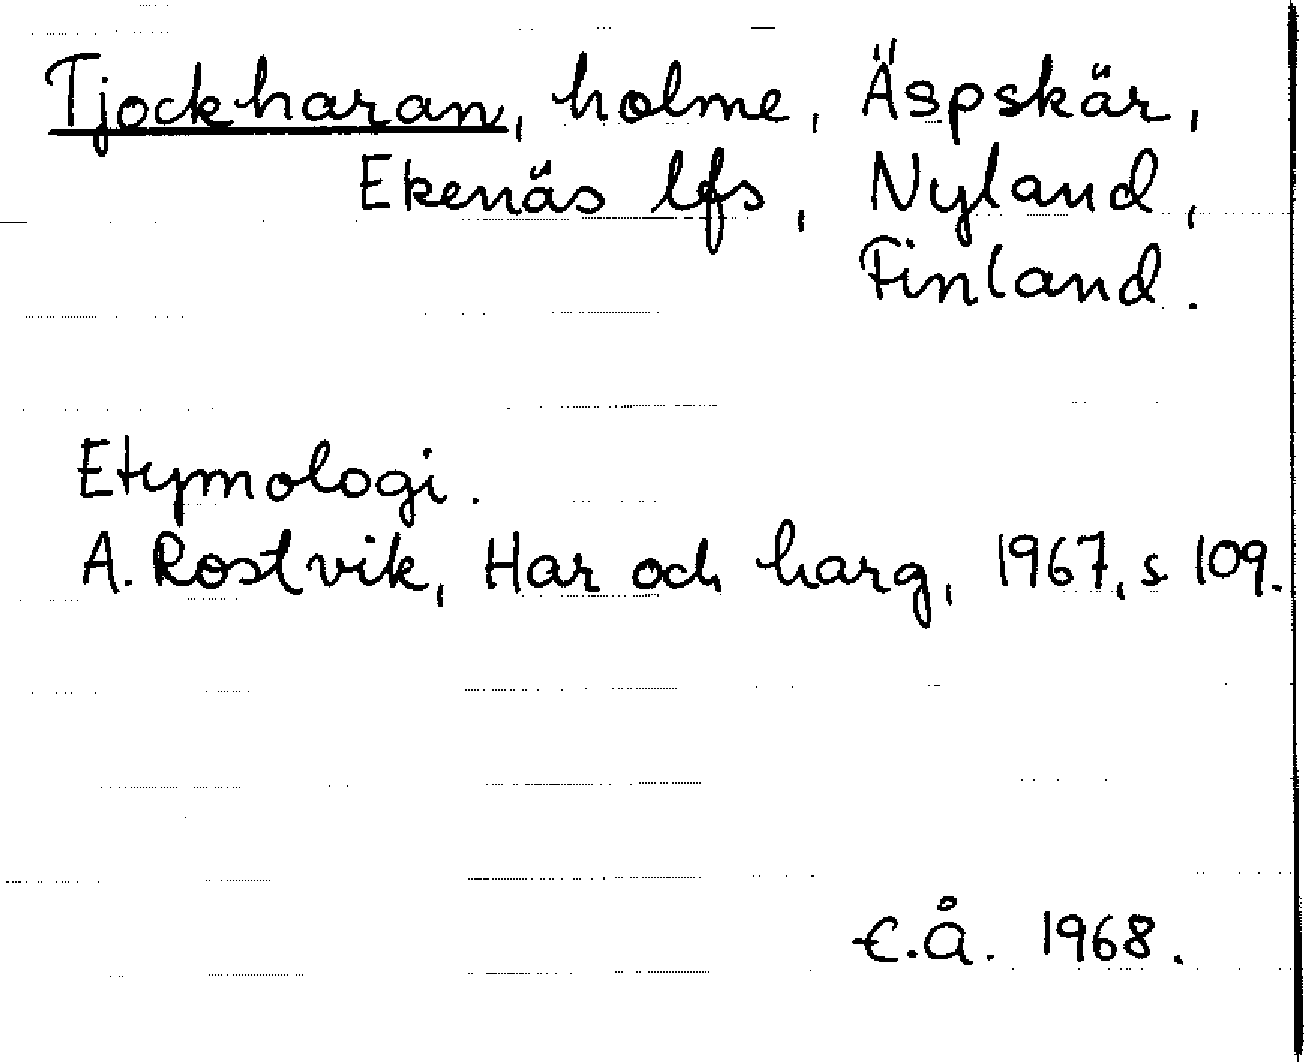 Tjockharan, holme, Äspskär,
Ekenäs lfs, Nyland,
Finland.
Etymologi.
A. Rostvik, Har och harg, 1967, s 109.
E.Å. 1968.